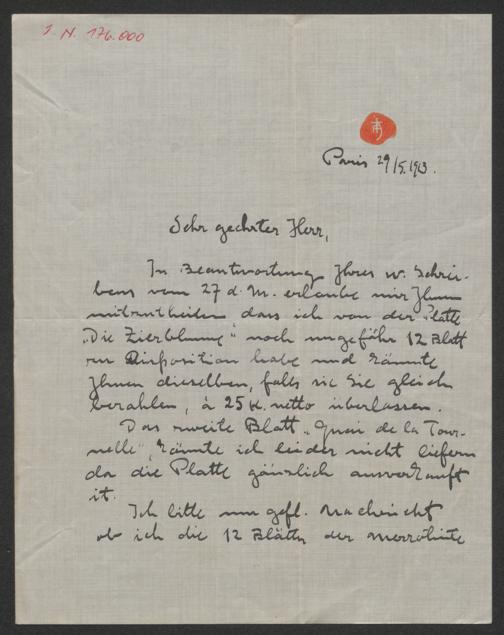 I. N. 176.000
Paris 29/5. 1913.
Sehr geehrter Herr,
In Beantwortung Ihres w. Schrei-
bens vom 27 d. M. erlaube mir Ihnen
mitzutheilen dass ich von der Platte
„Die Zierblume" noch ungefähr 12 Blatt
zur Disposition habe und könnte
Ihnen dieselben, falls sie Sie gleich
bezahlen, à 25 K. netto überlassen.
Das zweite Blatt „Quai de la Tour-
nelle", könnte ich leider nicht liefern
da die Platte gänzlich ausverkauft
it.
Ich bitte um gefl. Nachricht
ob ich die 12 Blätter der